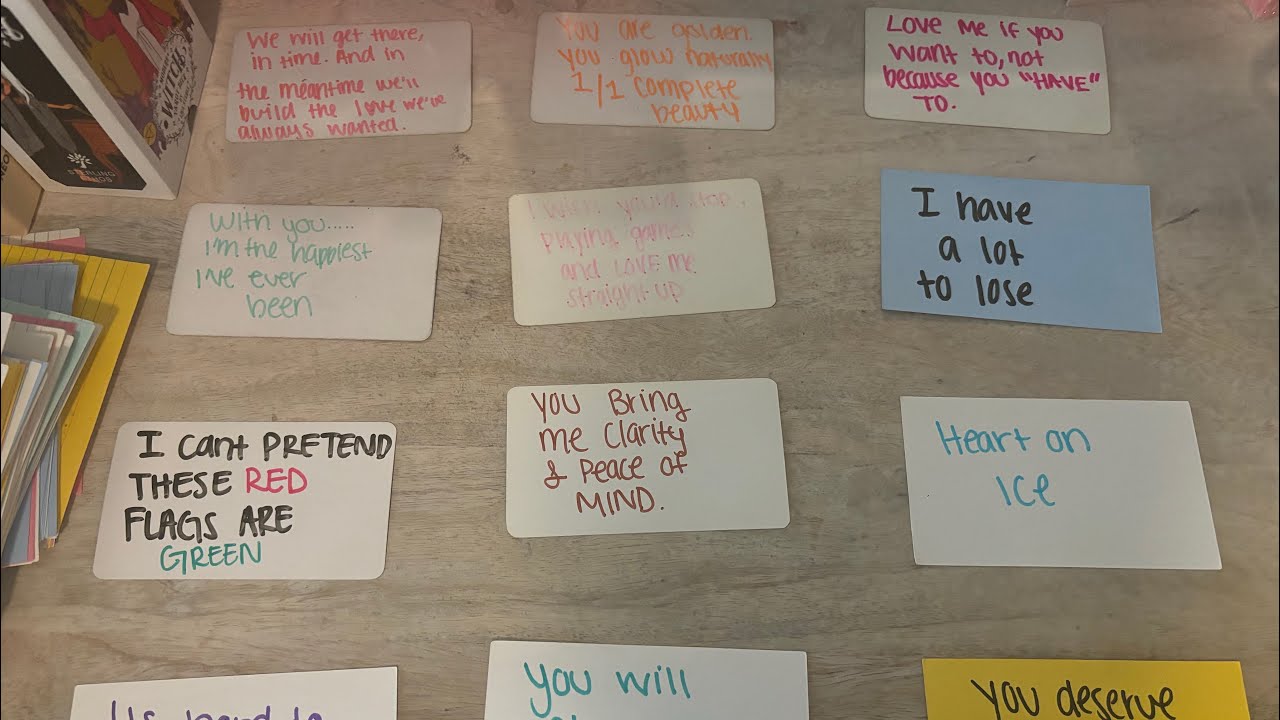 We will get there,
in time. And in
the meantime we'll
build the love we've
always wanted.
You are golden.
you glow naturally
1/1 complete
beauty
Love Me if you
want to, not
because you "HAVE"
TO.
With you.....
I'm the happiest
I've ever
been
I wish you'd stop
playing games
and LOVE me
straight up
I have
a lot
to lose
I cant PRETEND
THESE RED
FLAGS ARE
GREEN
You Bring
me Clarity
& Peace of
MIND.
Heart on
Ice
You will
You deserve
STERLING
WITCH